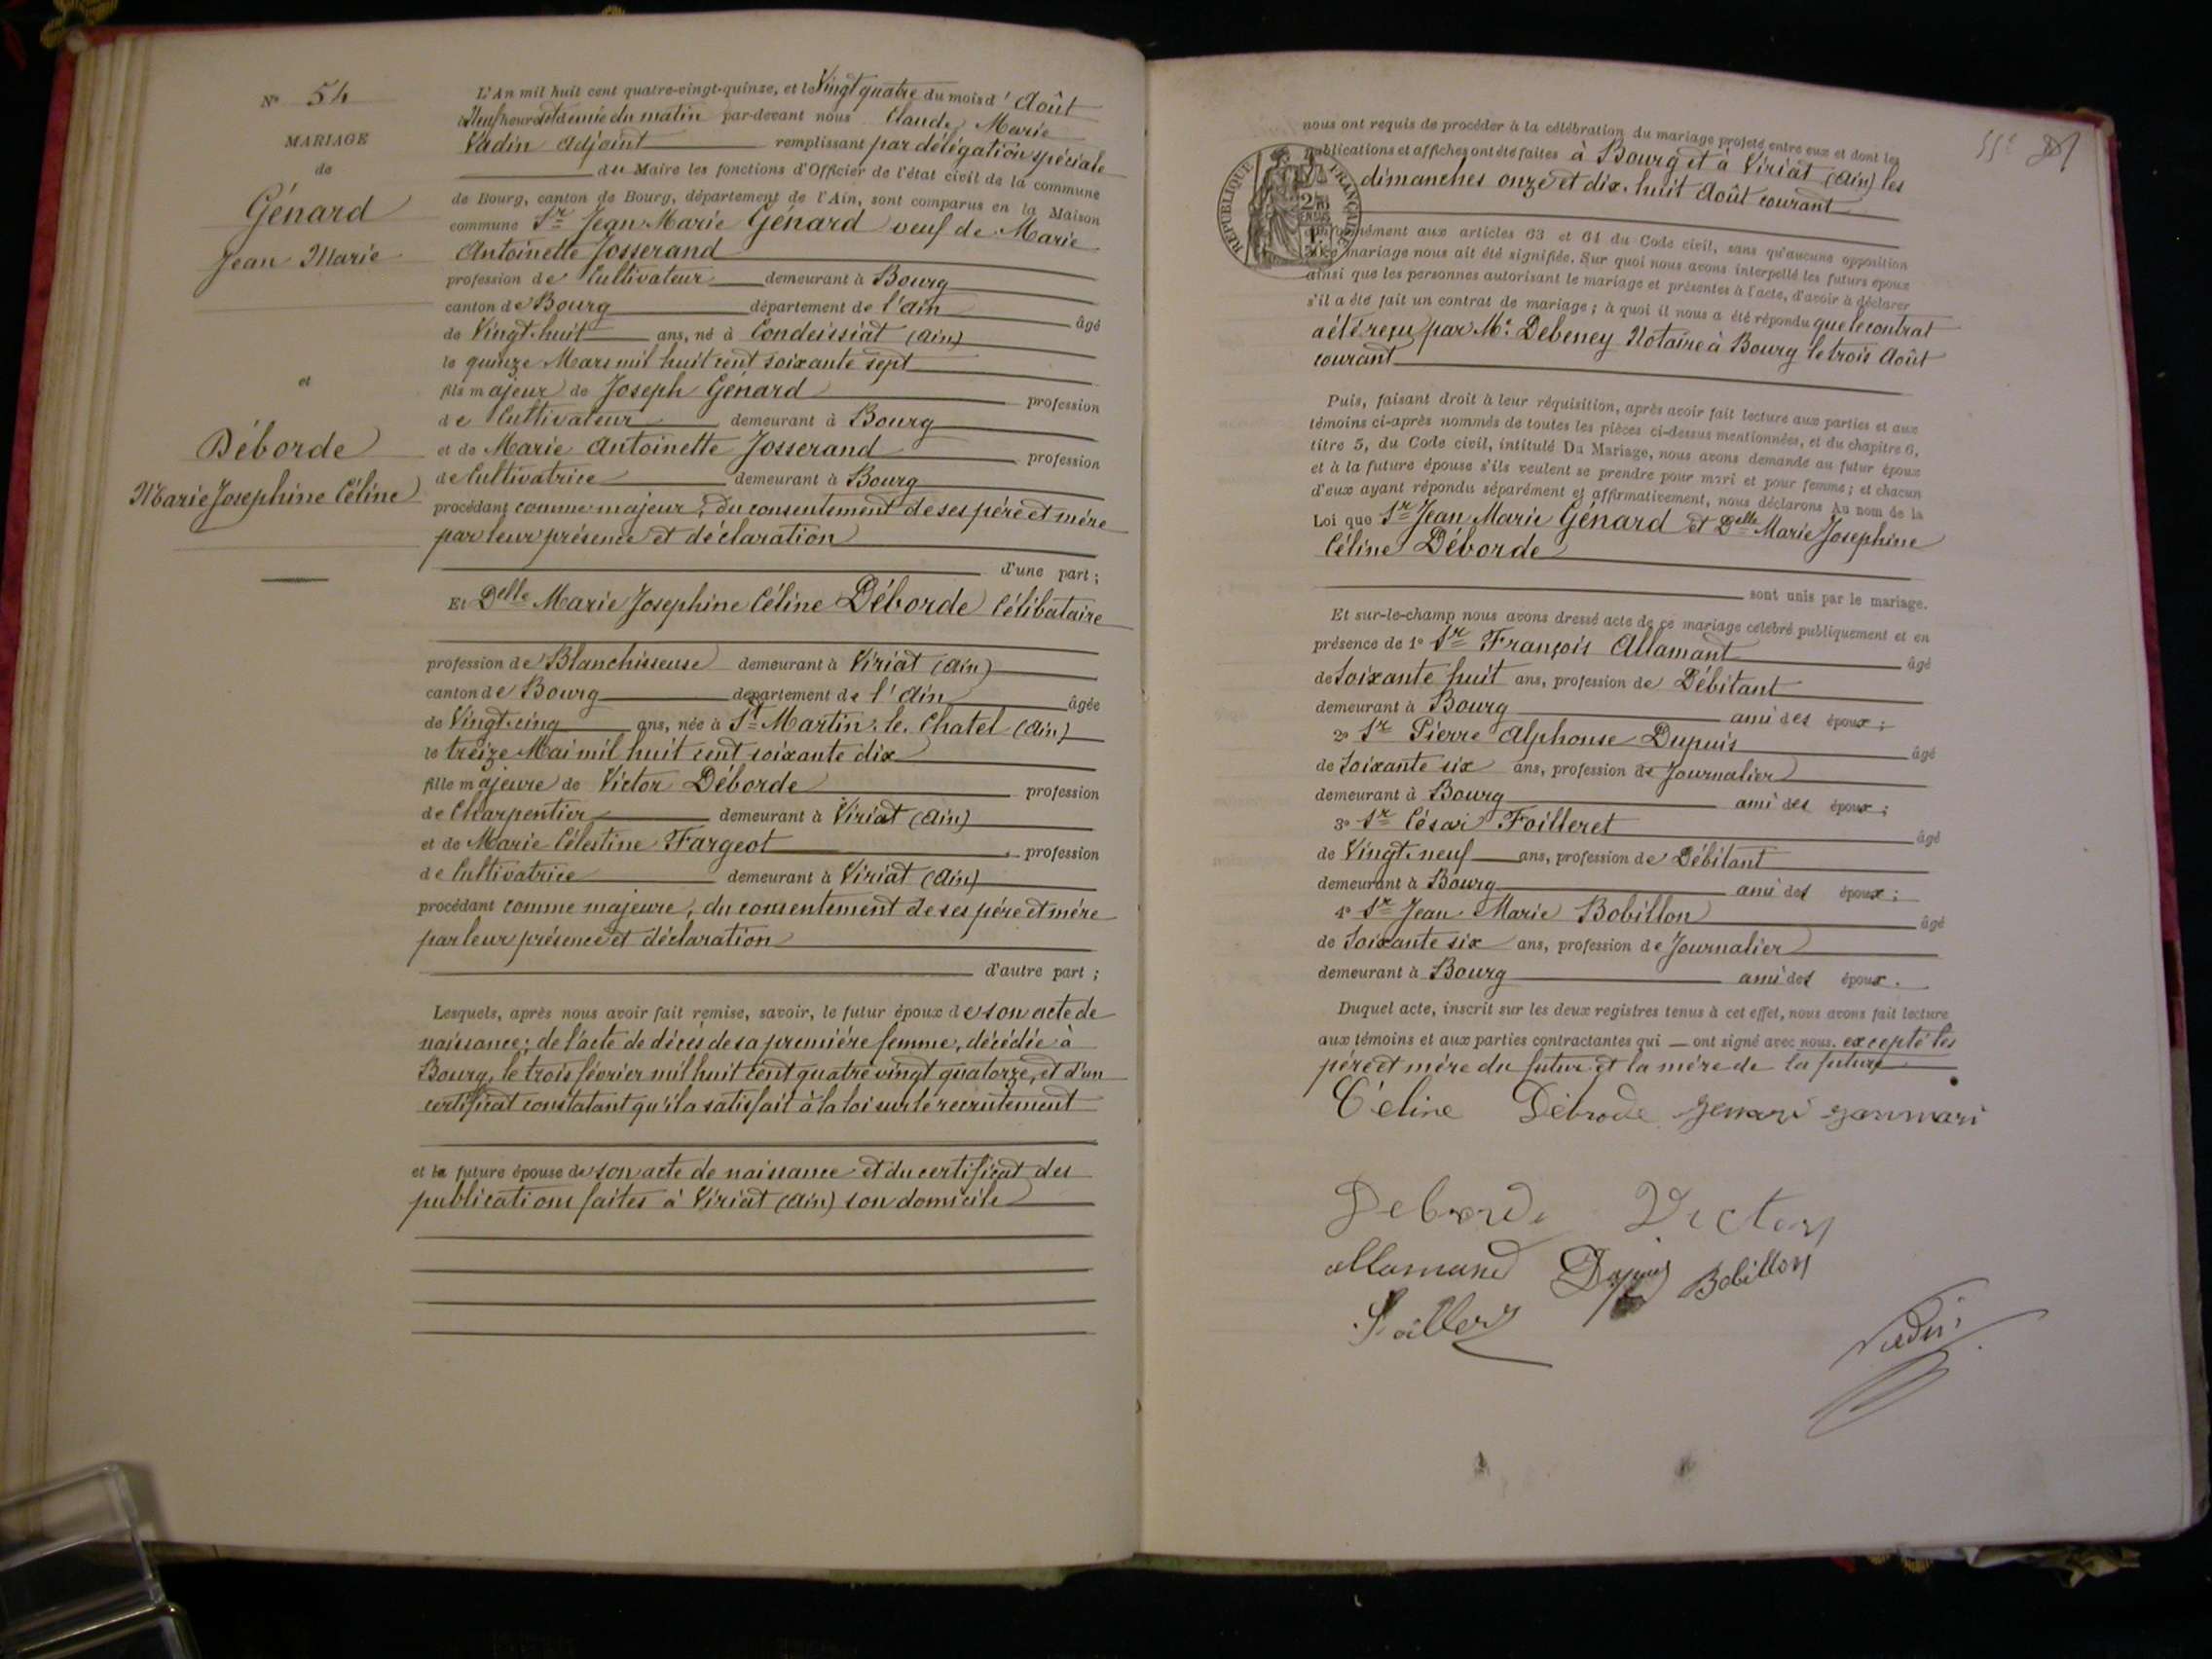 N° 54
MARIAGE
de
Génard
Jean Marie
et
Déborde
Marie Josephine Céline
L'An mil huit cent quatre-vingt-quinze, et le Vingt quatre du mois d'Août
à Neuf heures et demie du matin par-devant nous Claude Marie
Vadin Adjoint remplissant par délégation spéciale
du Maire les fonctions d'Officier de l'état civil de la commune
de Bourg, canton de Bourg, département de l'Ain, sont comparus en la Maison
commune Sr Jean Marie Génard veuf de Marie
Antoinette Josserand
profession de Cultivateur demeurant à Bourg
canton de Bourg département de l'Ain âgé
de Vingt-huit ans, né à Condeissiat (Ain)
le quinze Mars mil huit cent soixante sept
fils majeur de Joseph Génard profession
de Cultivateur demeurant à Bourg
et de Marie Antoinette Josserand profession
de Cultivatrice demeurant à Bourg
procédant comme majeur, du consentement de ses père et mère
par leur présence et déclaration
d'une part ;
Et Delle Marie Josephine Céline Déborde Célibataire
profession de Blanchisseuse demeurant à Viriat (Ain)
canton de Bourg département de l'Ain âgée
de Vingt-cinq ans, née à St Martin-le-Chatel (Ain)
le treize Mai mil huit cent soixante dix
fille majeure de Victor Déborde profession
de Charpentier demeurant à Viriat (Ain)
et de Marie Célestine Fargeot profession
de Cultivatrice demeurant à Viriat (Ain)
procédant comme majeure, du consentement de ses père et mère
par leur présence et déclaration
d'autre part ;
Lesquels, après nous avoir fait remise, savoir, le futur époux de son acte de
naissance ; de l'acte de décès de sa première femme, décédée à
Bourg, le trois février mil huit cent quatre vingt quatorze, et d'un
certificat constatant qu'il a satisfait à la loi sur le recrutement
et la future épouse de son acte de naissance et du certificat des
publications faites à Viriat (Ain) son domicile
nous ont requis de procéder à la célébration du mariage projeté entre eux et dont les
publications et affiches ont été faites à Bourg et à Viriat (Ain) les
dimanches onze et dix-huit Août courant
RÉPUBLIQUE FRANÇAISE
conformément aux articles 63 et 64 du Code civil, sans qu'aucune opposition
mariage nous ait été signifiée. Sur quoi nous avons interpellé les futurs époux
ainsi que les personnes autorisant le mariage et présentes à l'acte, d'avoir à déclarer
s'il a été fait un contrat de mariage ; à quoi il nous a été répondu que le contrat
a été reçu par Me Debeney Notaire à Bourg le trois Août
courant
Puis, faisant droit à leur réquisition, après avoir fait lecture aux parties et aux
témoins ci-après nommés de toutes les pièces ci-dessus mentionnées, et du chapitre 6,
titre 5, du Code civil, intitulé Du Mariage, nous avons demandé au futur époux
et à la future épouse s'ils veulent se prendre pour mari et pour femme ; et chacun
d'eux ayant répondu séparément et affirmativement, nous déclarons Au nom de la
Loi que Sr Jean Marie Génard et Delle Marie Josephine
Céline Déborde
sont unis par le mariage.
Et sur-le-champ nous avons dressé acte de ce mariage célébré publiquement et en
présence de 1° Sr François Allamant âgé
de Soixante huit ans, profession de Débitant
demeurant à Bourg ami des époux ;
2° Sr Pierre Alphonse Dupuis âgé
de Soixante six ans, profession de Journalier
demeurant à Bourg ami des époux ;
3° Sr César Foilleret âgé
de Vingt-neuf ans, profession de Débitant
demeurant à Bourg ami des époux ;
4° Sr Jean-Marie Bobillon âgé
de Soixante six ans, profession de Journalier
demeurant à Bourg ami des époux.
Duquel acte, inscrit sur les deux registres tenus à cet effet, nous avons fait lecture
aux témoins et aux parties contractantes qui ont signé avec nous. excepté les
père et mère du futur et la mère de la future
Céline Débrode
Deborde Victor
allamand Dupuis Bobillon